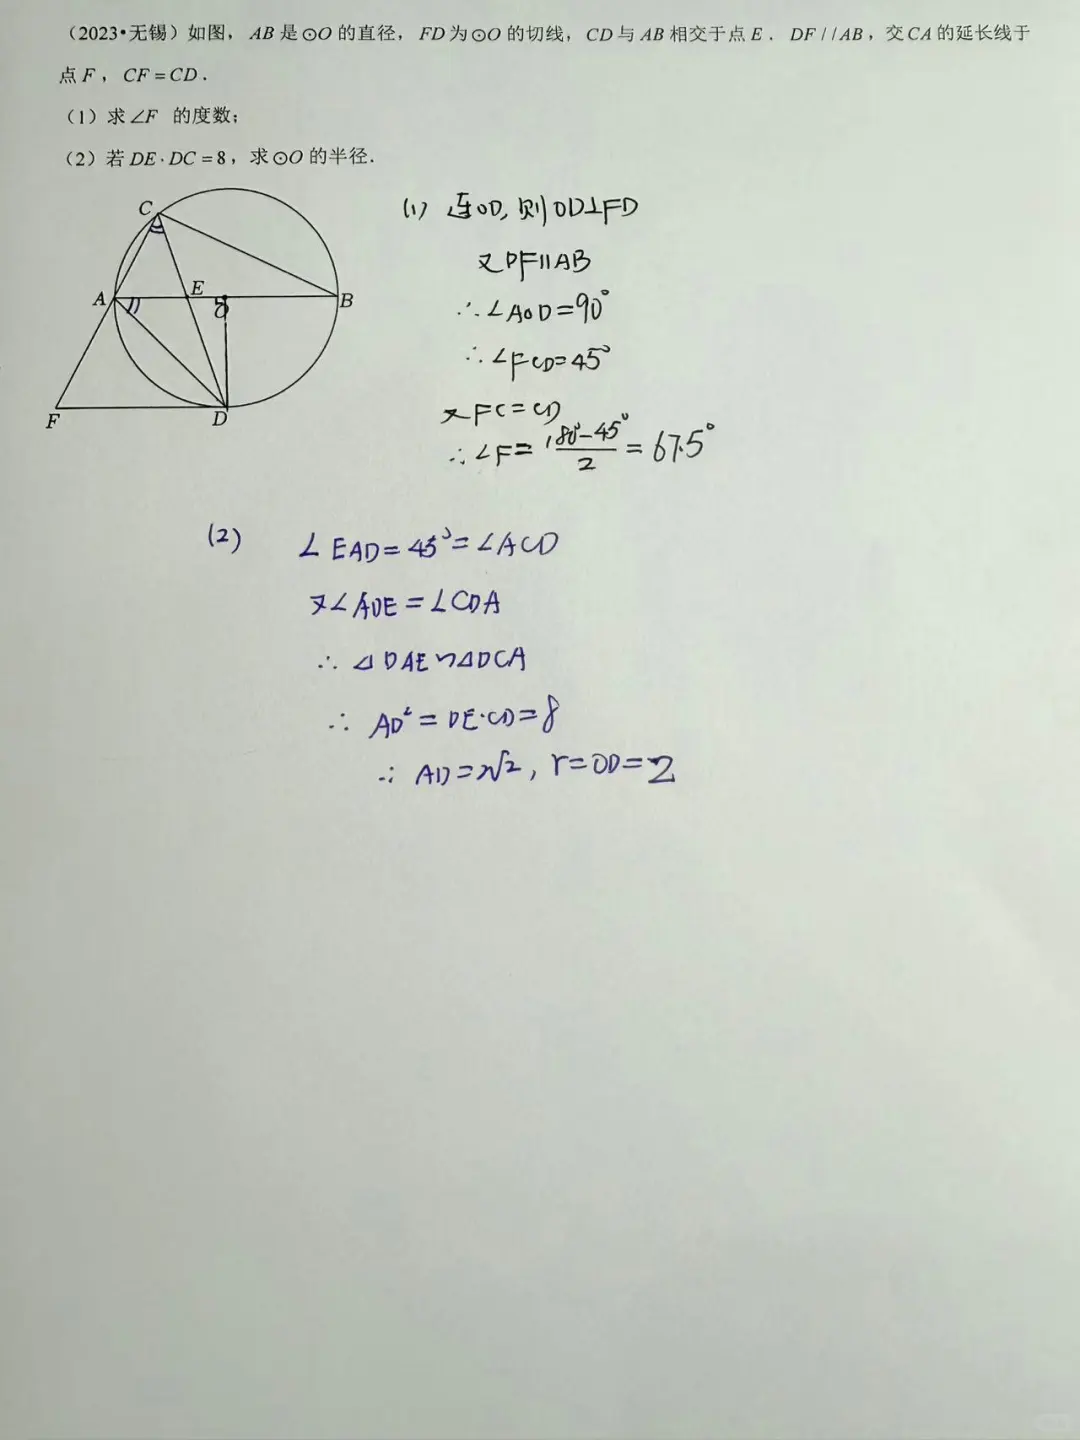 （2023•无锡）如图，AB是⊙O的直径，FD为⊙O的切线，CD与AB相交于点E．DF//AB，交CA的延长线于
点F，CF=CD．
（1）求∠F 的度数；
（2）若DE·DC=8，求⊙O的半径．
C
A
E
O
B
F
D
(1) 连OD, 则OD⊥FD
又DF∥AB
∴∠AOD=90°
∴∠FCD=45°
又FC=CD
∴∠F=(180°-45°)/2=67.5°
(2) ∠EAD=45°=∠ACD
又∠ADE=∠CDA
∴△DAE∽△DCA
∴AD²=DE·CD=8
∴AD=2√2, r=OD=2